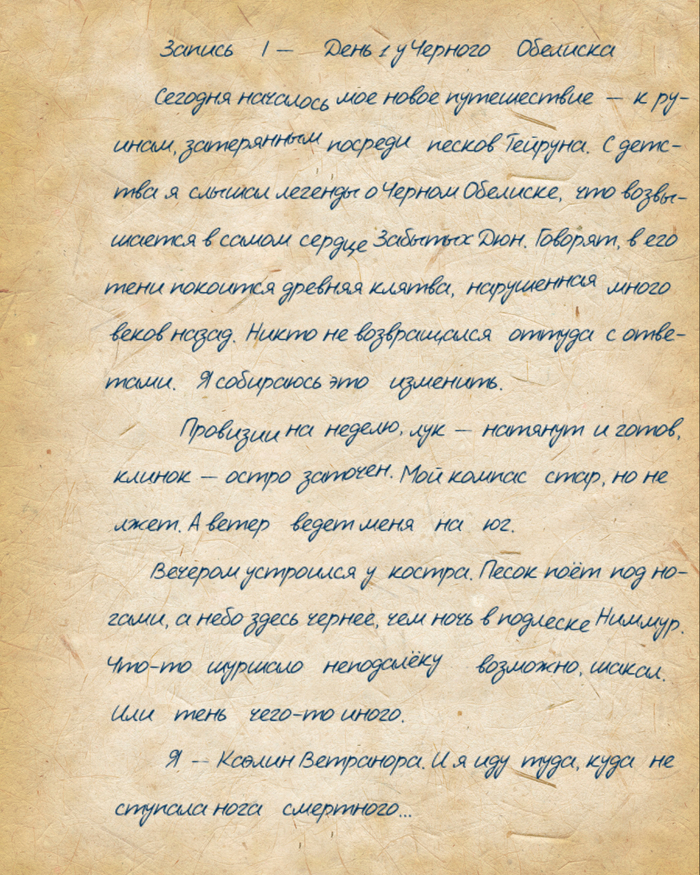 Запись 1 — День 1 у Черного Обелиска
Сегодня началось мое новое путешествие — к ру-
инам, затерянным посреди песков Тейруна. С детс-
тва я слышал легенды о Черном Обелиске, что возвы-
шается в самом сердце Забытых Дюн. Говорят, в его
тени покоится древняя клятва, нарушенная много
веков назад. Никто не возвращался оттуда с отве-
тами. Я собираюсь это изменить.
Провизии на неделю, лук — натянут и готов,
клинок — остро заточен. Мой компас стар, но не
лжет. А ветер ведет меня на юг.
Вечером устроился у костра. Песок поёт под но-
гами, а небо здесь чернее, чем ночь в подлеске Ниммур.
Что-то шуршало неподалёку возможно, шакал.
Или тень чего-то иного.
Я — Ксэлин Ветранора. И я иду туда, куда не
ступала нога смертного...